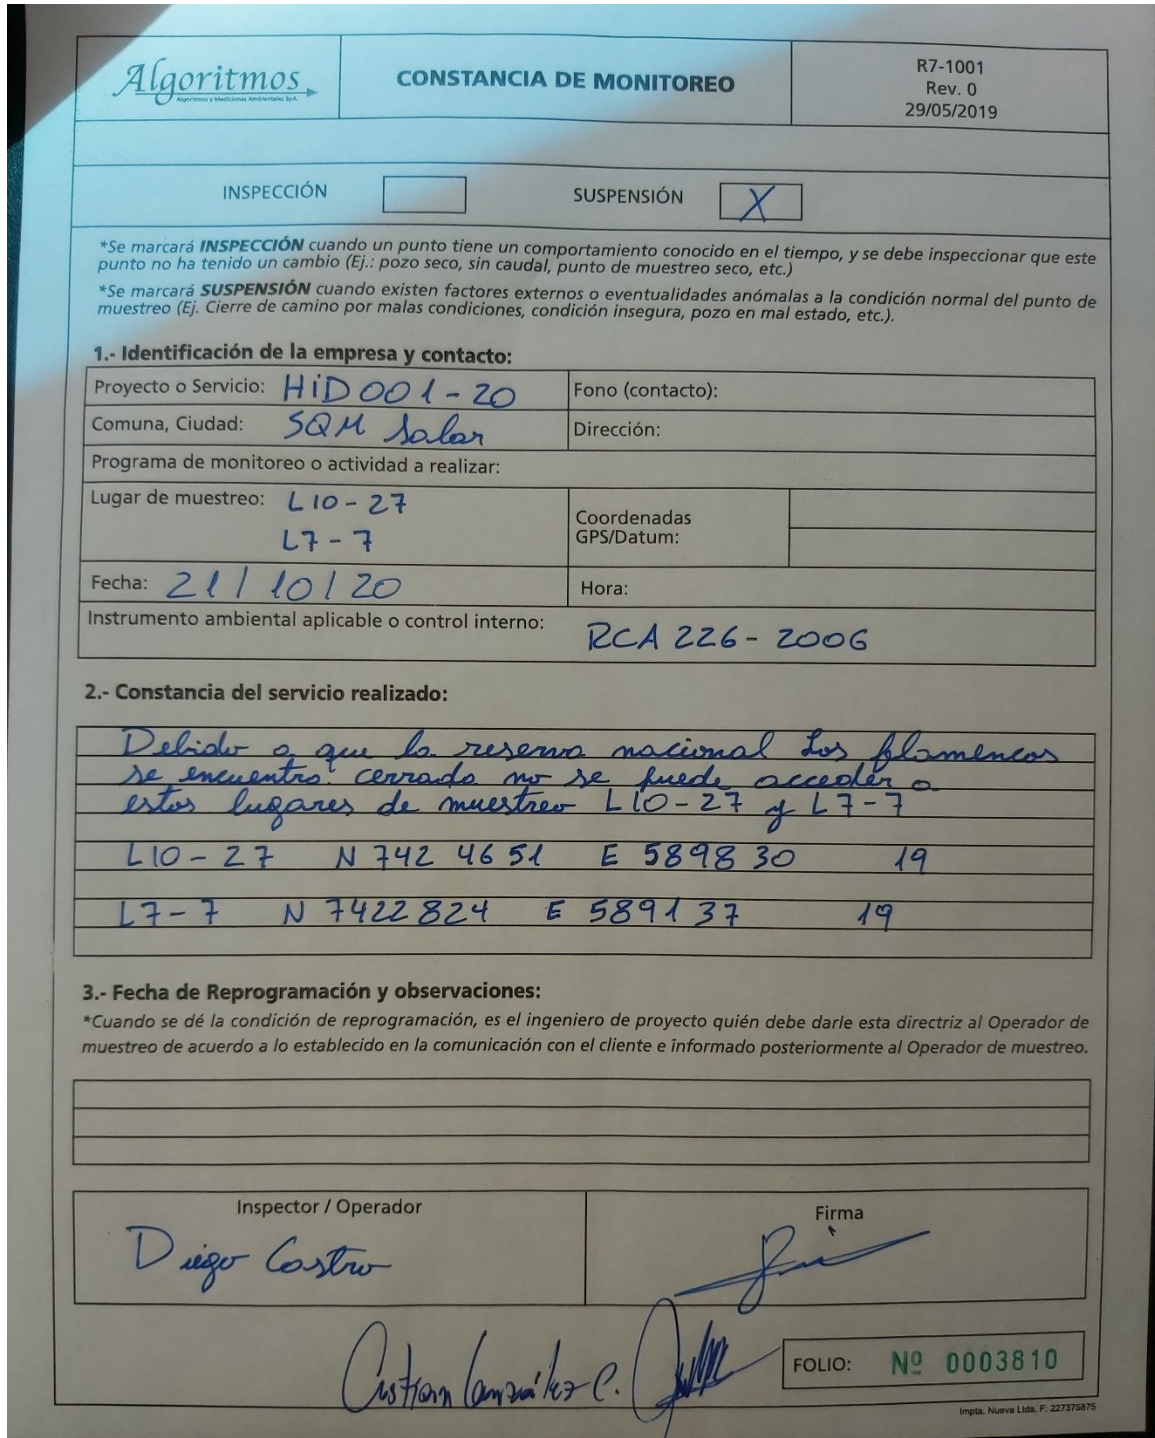 Algoritmos
Algoritmos y Mediciones Ambientales SpA.
CONSTANCIA DE MONITOREO
R7-1001
Rev. 0
29/05/2019
INSPECCIÓN
SUSPENSIÓN X
*Se marcará INSPECCIÓN cuando un punto tiene un comportamiento conocido en el tiempo, y se debe inspeccionar que este
punto no ha tenido un cambio (Ej.: pozo seco, sin caudal, punto de muestreo seco, etc.)
*Se marcará SUSPENSIÓN cuando existen factores externos o eventualidades anómalas a la condición normal del punto de
muestreo (Ej. Cierre de camino por malas condiciones, condición insegura, pozo en mal estado, etc.).
1.- Identificación de la empresa y contacto:
Proyecto o Servicio: HID001-20 Fono (contacto):
Comuna, Ciudad: SQM Salar Dirección:
Programa de monitoreo o actividad a realizar:
Lugar de muestreo: L10-27
L7-7
Coordenadas
GPS/Datum:
Fecha: 21/10/20 Hora:
Instrumento ambiental aplicable o control interno: RCA 226-2006
2.- Constancia del servicio realizado:
Debido a que la reserva nacional Los flamencos
se encuentra cerrada no se puede acceder a
estos lugares de muestreo L10-27 y L7-7
L10-27 N 742 4651 E 589830 19
L7-7 N 7422824 E 589137 19
3.- Fecha de Reprogramación y observaciones:
*Cuando se dé la condición de reprogramación, es el ingeniero de proyecto quién debe darle esta directriz al Operador de
muestreo de acuerdo a lo establecido en la comunicación con el cliente e informado posteriormente al Operador de muestreo.
Inspector / Operador
Firma
Diego Castro
Cristian González C.
FOLIO: Nº 0003810
Impta. Nueva Ltda. F: 227375875